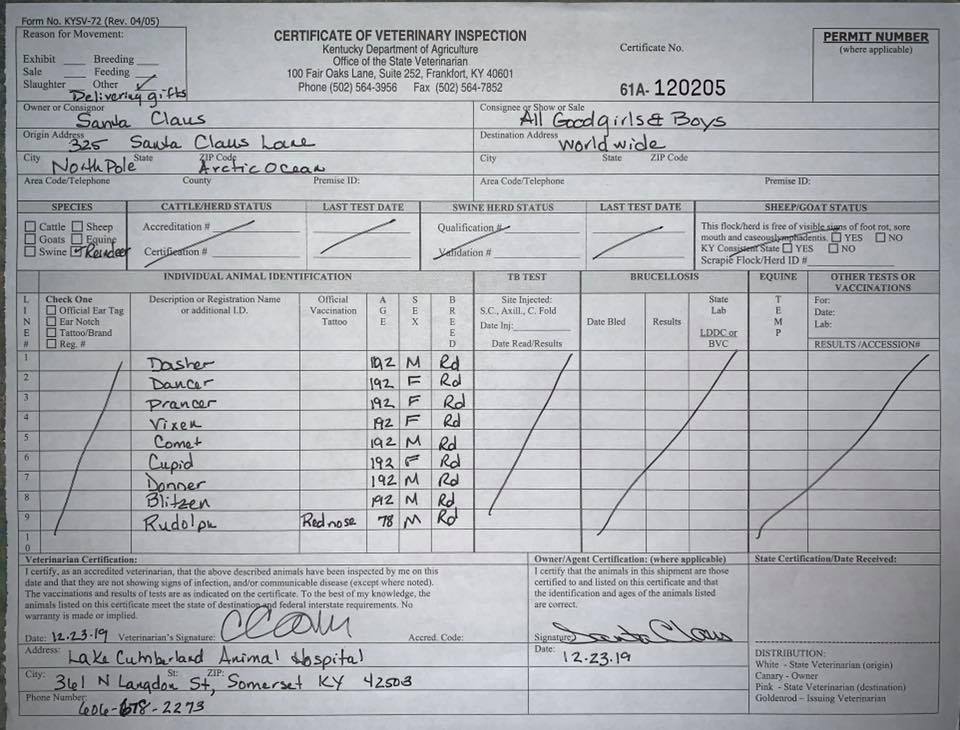 Form No. KYSV-72 (Rev. 04/05)
Reason for Movement:
Exhibit ___ Breeding ___
Sale ___ Feeding ___
Slaughter ___ Other ✓
Delivering gifts
CERTIFICATE OF VETERINARY INSPECTION
Kentucky Department of Agriculture
Office of the State Veterinarian
100 Fair Oaks Lane, Suite 252, Frankfort, KY 40601
Phone (502) 564-3956 Fax (502) 564-7852
Certificate No.
61A- 120205
PERMIT NUMBER
(where applicable)
Owner or Consignor
Santa Claus
Consignee or Show or Sale
All Good girls & Boys
Origin Address
325 Santa Claus Lane
Destination Address
Worldwide
City State ZIP Code
North Pole Arctic Ocean
City State ZIP Code
Area Code/Telephone County Premise ID:
Area Code/Telephone Premise ID:
SPECIES CATTLE/HERD STATUS LAST TEST DATE SWINE HERD STATUS LAST TEST DATE SHEEP/GOAT STATUS
Cattle Sheep
Goats Equine
Swine Reindeer
Accreditation #
Certification #
Qualification #
Validation #
This flock/herd is free of visible signs of foot rot, sore
mouth and caseous lymphadentis. YES NO
KY Consistent State YES NO
Scrapie Flock/Herd ID #
INDIVIDUAL ANIMAL IDENTIFICATION TB TEST BRUCELLOSIS EQUINE OTHER TESTS OR VACCINATIONS
LINE #
Check One
Official Ear Tag
Ear Notch
Tattoo/Brand
Reg. #
Description or Registration Name
or additional I.D.
Official
Vaccination
Tattoo
AGE
SEX
BREED
Site Injected:
S.C., Axill., C. Fold
Date Inj:
Date Read/Results
Date Bled Results
State
Lab
LDDC or
BVC
TEMP
For:
Date:
Lab:
RESULTS /ACCESSION#
1 Dasher 192 M Rd
2 Dancer 192 F Rd
3 Prancer 192 F Rd
4 Vixen 192 F Rd
5 Comet 192 M Rd
6 Cupid 192 F Rd
7 Donner 192 M Rd
8 Blitzen 192 M Rd
9 Rudolph Rednose 78 M Rd
10
Veterinarian Certification:
I certify, as an accredited veterinarian, that the above described animals have been inspected by me on this
date and that they are not showing signs of infection, and/or communicable disease (except where noted).
The vaccinations and results of tests are as indicated on the certificate. To the best of my knowledge, the
animals listed on this certificate meet the state of destination and federal interstate requirements. No
warranty is made or implied.
Date: 12.23.19 Veterinarian's Signature: Accred. Code:
Address: Lake Cumberland Animal Hospital
City: St: ZIP:
361 N Langdon St, Somerset KY 42503
Phone Number:
606-678-2273
Owner/Agent Certification: (where applicable)
I certify that the animals in this shipment are those
certified to and listed on this certificate and that
the identification and ages of the animals listed
are correct.
Signature: Santa Claus
Date: 12.23.19
State Certification/Date Received:
DISTRIBUTION:
White - State Veterinarian (origin)
Canary - Owner
Pink - State Veterinarian (destination)
Goldenrod – Issuing Veterinarian